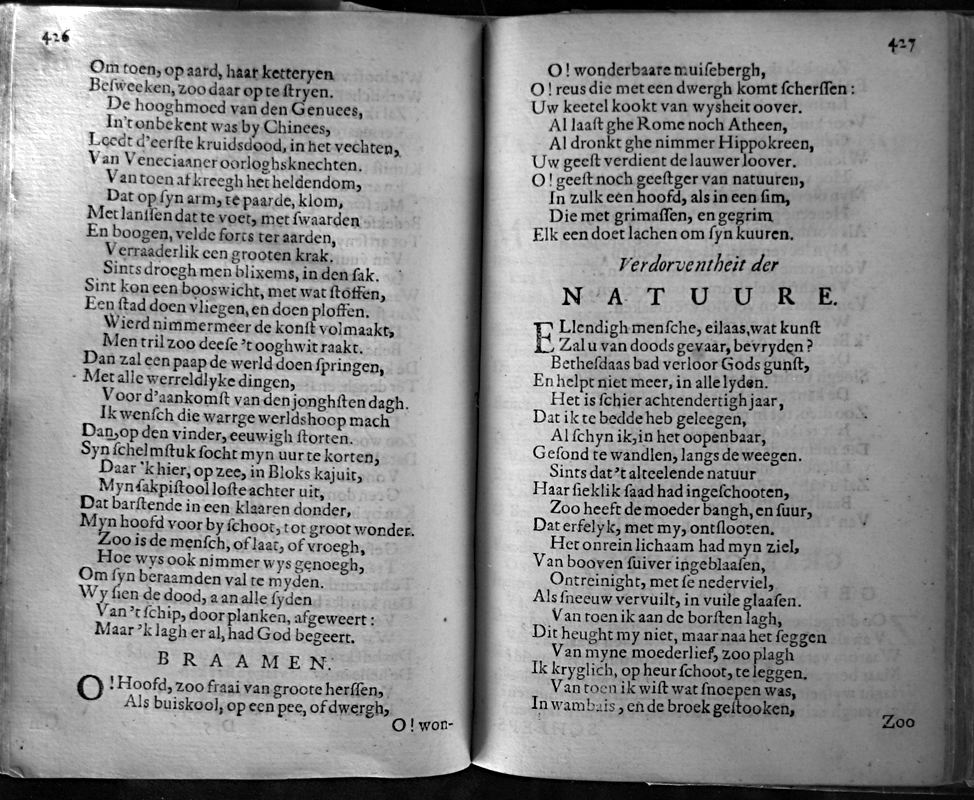 426
Om toen, op aard, haar ketteryen
Beſweeken, zoo daar op te ſtryen.
De hooghmoed van den Genuees,
In't onbekent was by Chinees,
Leedt d'eerſte kruidsdood, in het vechten,
Van Veneciaaner oorloghsknechten.
Van toen af kreegh het heldendom,
Dat op ſyn arm, te paarde, klom,
Met lanſſen dat te voet, met ſwaarden
En boogen, velde forts ter aarden,
Verraaderlik een grooten krak.
Sints droegh men blixems, in den ſak.
Sint kon een booswicht, met wat ſtoffen,
Een ſtad doen vliegen, en doen ploffen.
Wierd nimmermeer de konſt volmaakt,
Men tril zoo deeſe 't ooghwit raakt.
Dan zal een paap de werld doen ſpringen,
Met alle werreldlyke dingen,
Voor d'aankomſt van den jonghſten dagh.
Ik wenſch die warrge werldshoop mach
Dan, op den vinder, eeuwigh ſtorten.
Syn ſchelmſtuk ſocht myn uur te korten,
Daar 'k hier, op zee, in Bloks kajuit,
Myn ſakpiſtool loſte achter uit,
Dat barſtende in een klaaren donder,
Myn hoofd voor by ſchoot, tot groot wonder.
Zoo is de menſch, of laat, of vroegh,
Hoe wys ook nimmer wys genoegh,
Om ſyn beraamden val te myden.
Wy ſien de dood, aan alle ſyden
Van 't ſchip, door planken, afgeweert:
Maar 'k lagh er al, had God begeert.
BRAAMEN.
O! Hoofd, zoo fraai van groote herſſen,
Als buiskool, op een pee, of dwergh,
O! won-
427
O! wonderbaare muiſebergh,
O! reus die met een dwergh komt ſcherſſen:
Uw keetel kookt van wysheit oover.
Al laaſt ghe Rome noch Atheen,
Al dronkt ghe nimmer Hippokreen,
Uw geeſt verdient de lauwer loover.
O! geeſt noch geeſtger van natuuren,
In zulk een hoofd, als in een ſim,
Die met grimaſſen, en gegrim
Elk een doet lachen om ſyn kuuren.
Verdorventheit der
NATUURE.
ELlendigh menſche, eilaas, wat kunſt
Zal u van doods gevaar, bevryden?
Betheſdaas bad verloor Gods gunſt,
En helpt niet meer, in alle lyden.
Het is ſchier achtendertigh jaar,
Dat ik te bedde heb geleegen,
Al ſchyn ik, in het oopenbaar,
Geſond te wandlen, langs de weegen.
Sints dat 't alteelende natuur
Haar ſieklik ſaad had ingeſchooten,
Zoo heeft de moeder bangh, en ſuur,
Dat erfelyk, met my, ontſlooten.
Het onrein lichaam had myn ziel,
Van booven ſuiver ingeblaaſen,
Ontreinight, met ſe nederviel,
Als ſneeuw vervuilt, in vuile glaaſen.
Van toen ik aan de borſten lagh,
Dit heught my niet, maar naa het ſeggen
Van myne moederlief, zoo plagh
Ik kryglich, op heur ſchoot, te leggen.
Van toen ik wiſt wat ſnoepen was,
In wambais, en de broek geſtooken,
Zoo